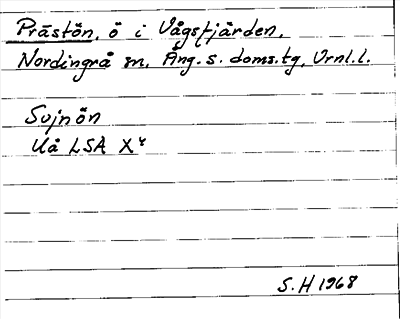 Prästön, ö i Vågsfjärden,
Nordingrå sn, Ång. s. doms.tg, Vrnl.l.
Svjnön
Uå LSA X⁴
S.H 1968